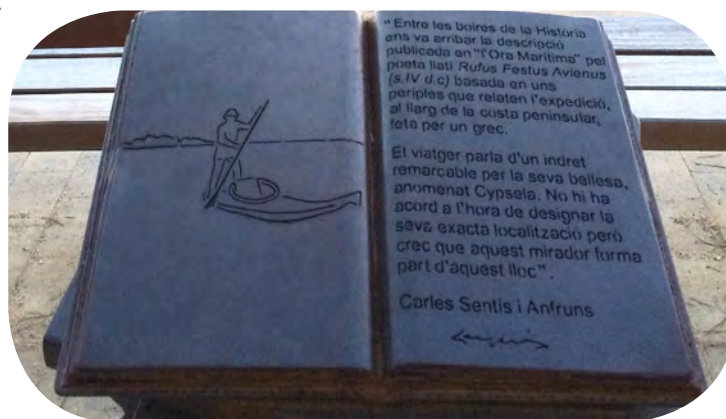 "Entre les boires de la Història
ens va arribar la descripció
publicada en "l'Ora Marítima" pel
poeta llatí Rufus Festus Avienus
(s.IV d.c) basada en uns
periples que relaten l'expedició,
al llarg de la costa peninsular,
feta per un grec.
El viatger parla d'un indret
remarcable per la seva bellesa,
anomenat Cypsela. No hi ha
acord a l'hora de designar la
seva exacta localització però
crec que aquest mirador forma
part d'aquest lloc".
Carles Sentís i Anfruns